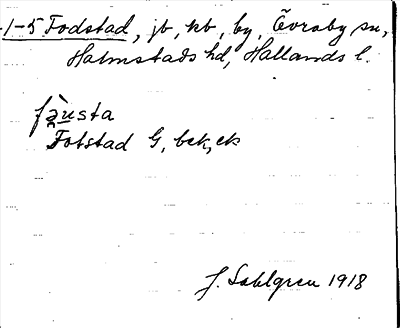 1-5 Fodstad, jb, kb, by, Övraby sn,
Halmstads hd, Hallands l.
fə̀usta
Fotstad G, bek, ek
J. Sahlgren 1918